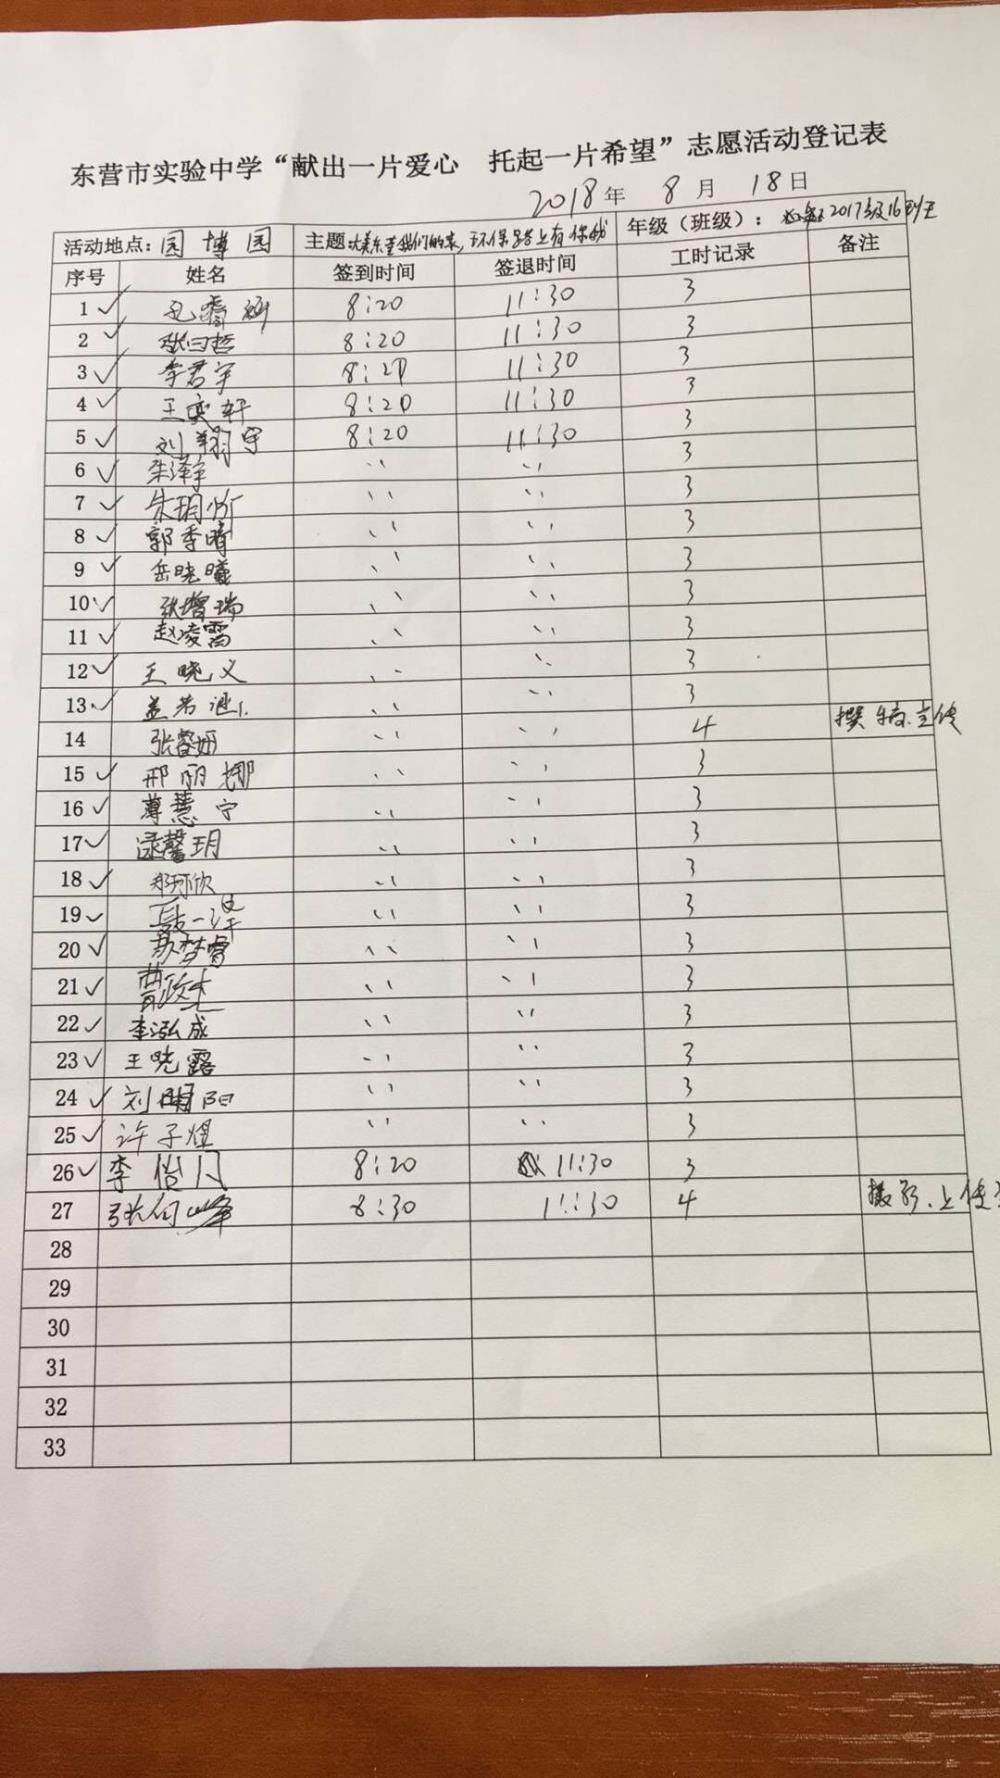 东营市实验中学“献出一片爱心 托起一片希望”志愿活动登记表
2018年 8月 18日
活动地点：园博园 主题 大美东营我们的家，环保路上有你我 年级（班级）： 2017级16班
序号 姓名 签到时间 签退时间 工时记录 备注
1 ✓ 8:20 11:30 3
2 ✓ 8:20 11:30 3
3 ✓ 李君宇 8:20 11:30 3
4 ✓ 王奕轩 8:20 11:30 3
5 ✓ 刘翔宇 8:20 11:30 3
6 ✓ 朱泽宇 〃 〃 3
7 ✓ 朱玥 〃 〃 3
8 ✓ 郭季晴 〃 〃 3
9 ✓ 岳晓曦 〃 〃 3
10 ✓ 张增瑞 〃 〃 3
11 ✓ 赵凌霄 〃 〃 3
12 ✓ 王晓义 〃 〃 3
13 ✓ 盖若 〃 〃 3
14 张馨妍 〃 〃 4 撰稿.宣传
15 ✓ 邢丽娜 〃 〃 3
16 ✓ 薄慧宁 〃 〃 3
17 ✓ 馨玥 〃 〃 3
18 ✓ 郑珂欣 〃 〃 3
19 ✓ 〃 〃 3
20 ✓ 苏梦睿 〃 〃 3
21 ✓ 〃 〃 3
22 ✓ 李泓成 〃 〃 3
23 ✓ 王晓露 〃 〃 3
24 ✓ 刘明阳 〃 〃 3
25 ✓ 许子煜 〃 〃 3
26 ✓ 李怡 8:20 11:30 3
27 张向峰 8:30 11:30 4 摄影.上传
28
29
30
31
32
33